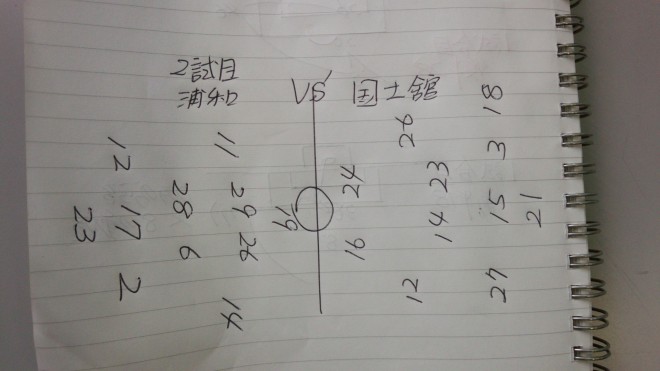 2試目
浦和 VS 国士舘
11
12
28
29
19
26
17
23
6
2
14
18
28
3
24
23
15
21
14
16
12
27